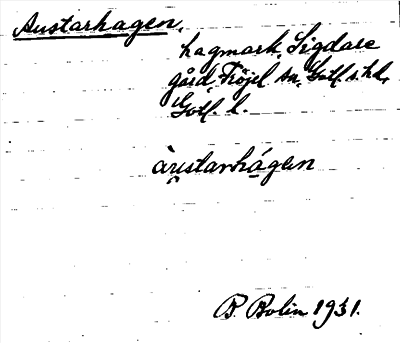 Austarhagen,
hagmark, Sigdare
gård, Fröjel sn, Gotl. s. hd,
Gotl. l.
àu̯starhágen
B. Bolin 1931.